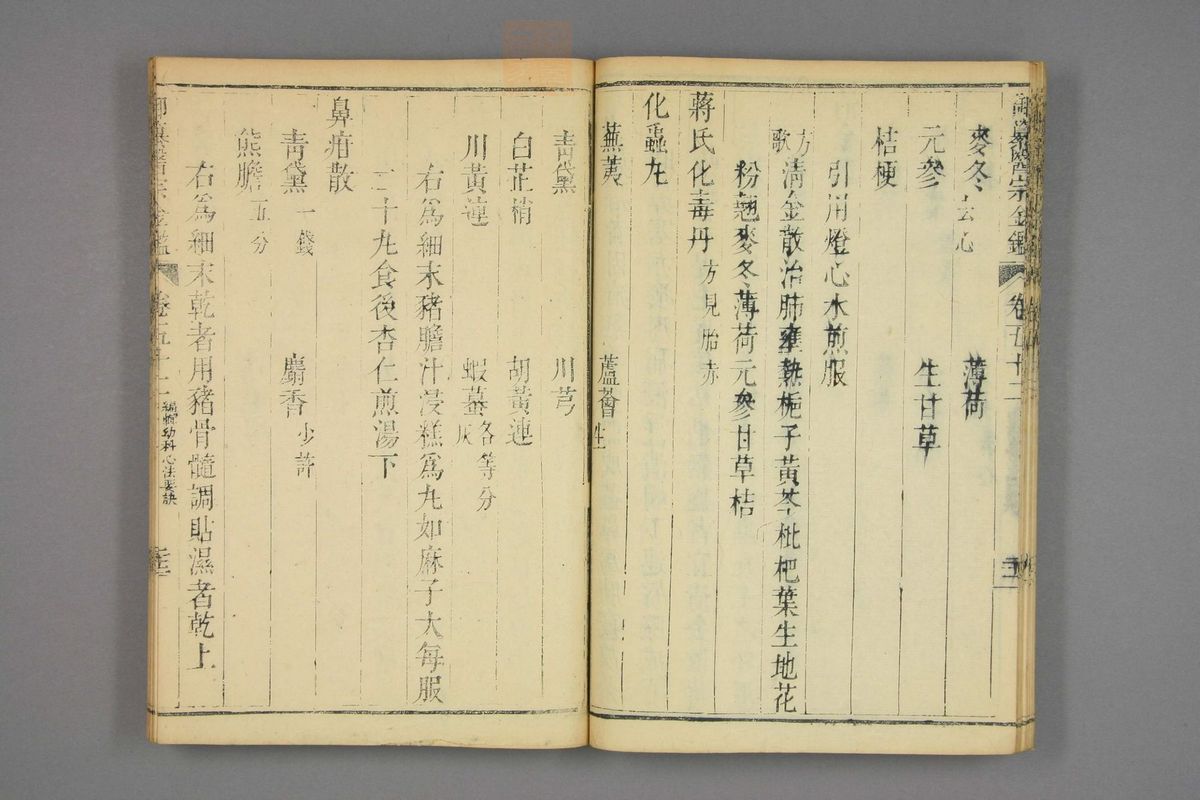 御纂醫宗金鑑 卷五十二
麥冬去心 薄荷
元參 生甘草
桔梗
引用燈心水煎服
方歌 清金散治肺壅熱梔子黃芩枇杷葉生地花
粉翹麥冬薄荷元參甘草桔
蔣氏化毒丹方見胎赤
化䘉丸
蕪荑 蘆薈生
青黛 川芎
白芷梢 胡黃連
川黃連 蝦蟇灰各等分
右爲細末豬膽汁浸糕爲丸如麻子大每服
二十丸食後杏仁煎湯下
鼻疳散
青黛一錢 麝香少許
熊膽五分
右爲細末乾者用豬骨髓調貼濕者乾上
御纂醫宗金鑑 卷五十二 編輯幼科心法要訣